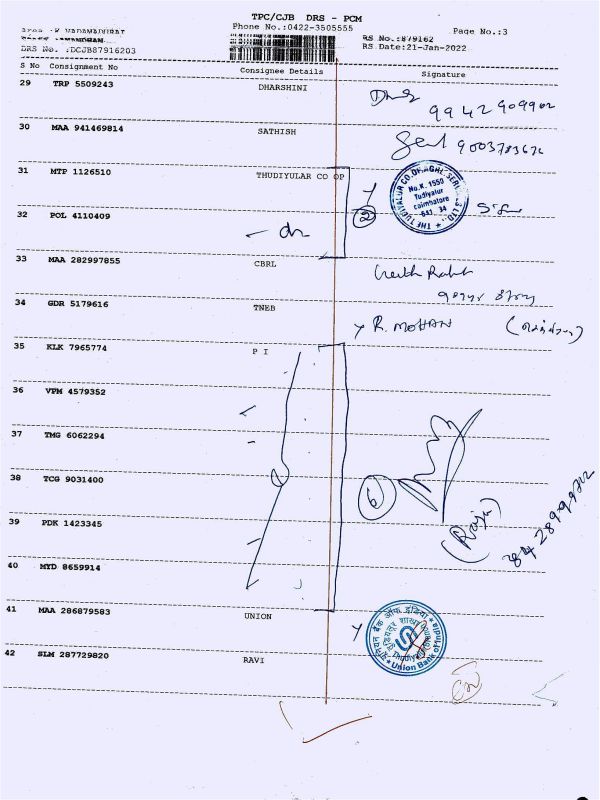 TPC/CJB DRS - PCM
Phone No.:0422-3505555
Page No.:3
RS No.:879162
DRS No. :DCJB87916203
RS Date:21-Jan-2022
S No Consignment No Consignee Details Signature
29 TRP 5509243 DHARSHINI
9942909902
30 MAA 941469814 SATHISH
31 MTP 1126510 THUDIYULAR CO OP
No.K. 1550
Tudiyalur
coimbatore
641 34
2
32 POL 4110409
33 MAA 282997855 CBRL
34 GDR 5179616 TNEB
R. MOHAN
35 KLK 7965774 P I
36 VPM 4579352
37 TMG 6062294
38 TCG 9031400
6
(Raju)
39 PDK 1423345
40 MYD 8659914
41 MAA 286879583 UNION
यूनियन बैंक ऑफ इंडिया
Union Bank of India
42 SLM 287729820 RAVI